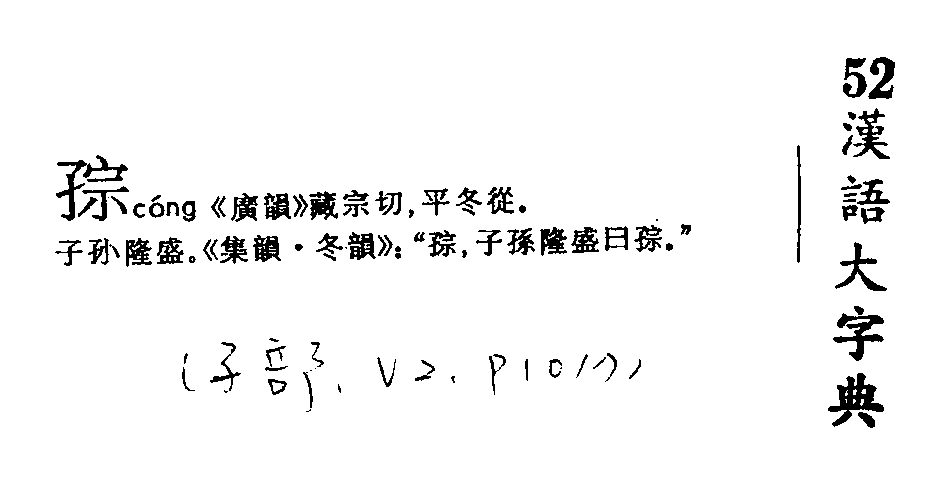 52
漢語大字典
孮cóng《廣韻》藏宗切,平冬從。
子孙隆盛。《集韻·冬韻》:“孮,子孫隆盛曰孮。”
(子部. V2. P1017)